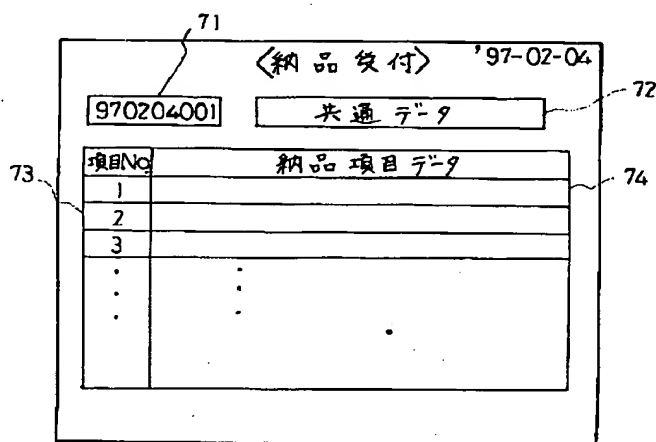 71
〈納品受付〉 '97-02-04
970204001 共通データ 72
項目No. 納品項目データ
73 1 74
2
3